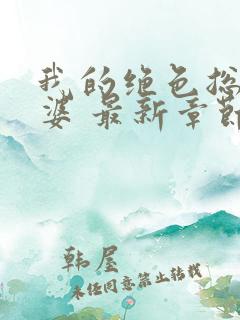 我的绝色总
婆 最新章节
韩屋
未经同意禁止转载